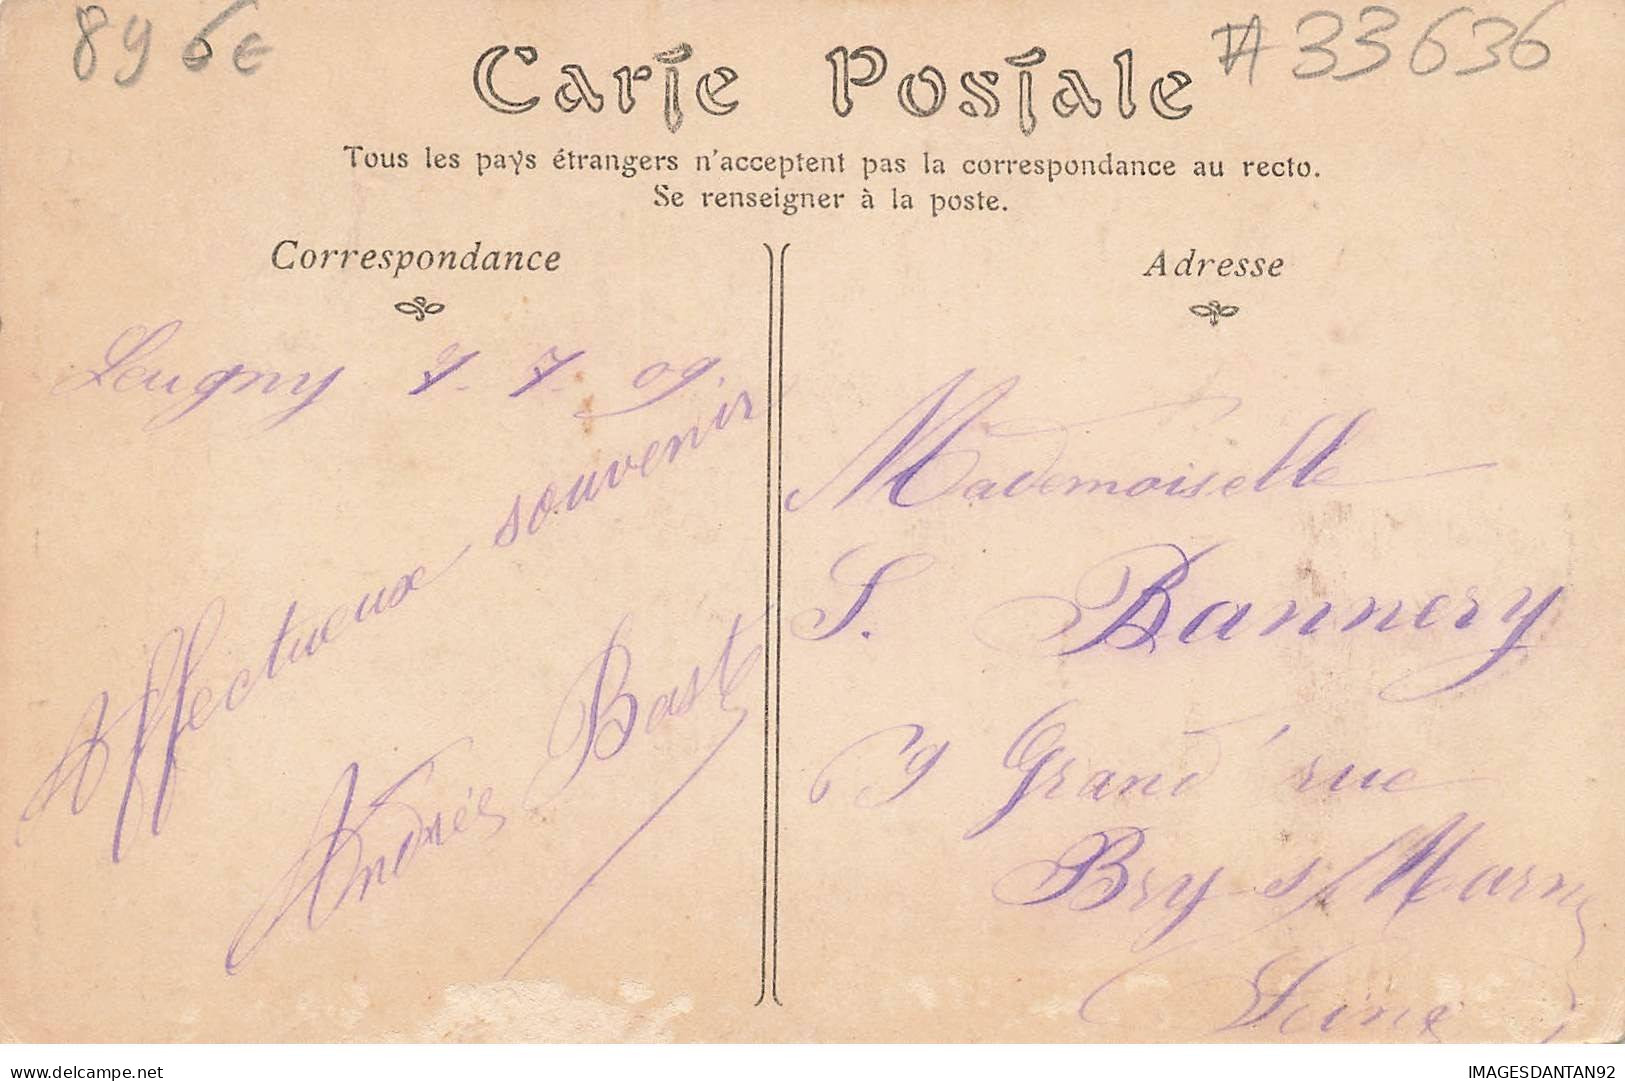 89 6€
#33636
Carte Postale
Tous les pays étrangers n'acceptent pas la correspondance au recto.
Se renseigner à la poste.
Correspondance
Leugny 7-7-09.
Affectueux souvenir
Andrée Bast
Adresse
Mademoiselle
S. Bannery
69 Grand' rue
Bry s/Marne
(Seine)
delcampe.net
IMAGESDANTAN92